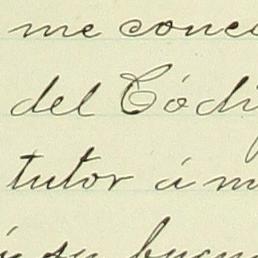 me conce
del Códi
tutor á m
á su buen